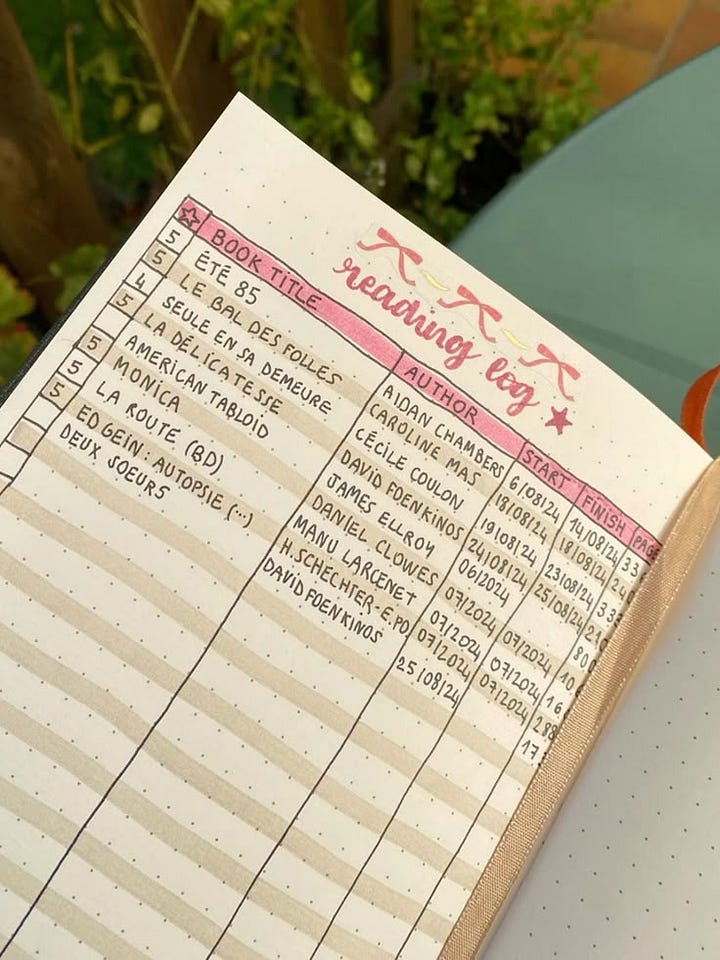 reading log
BOOK TITLE AUTHOR START FINISH PAGE
5 ÉTÉ 85 AIDAN CHAMBERS 6/08/24 14/08/24 33
5 LE BAL DES FOLLES CAROLINE MAS 18/08/24 18/08/24 24
4 SEULE EN SA DEMEURE CÉCILE COULON 19/08/24 23/08/24 33
5 LA DÉLICATESSE DAVID FOENKINOS 24/08/24 25/08/24 21
AMERICAN TABLOID JAMES ELLROY 06/2024 80
5 MONICA DANIEL CLOWES 07/2024 07/2024 10
5 LA ROUTE (BD) MANU LARCENET 07/2024 07/2024 16
5 ED GEIN : AUTOPSIE (...) H.SCHECHTER-E.PO 07/2024 07/2024 288
DEUX SOEURS DAVID FOENKINOS 25/08/24 17